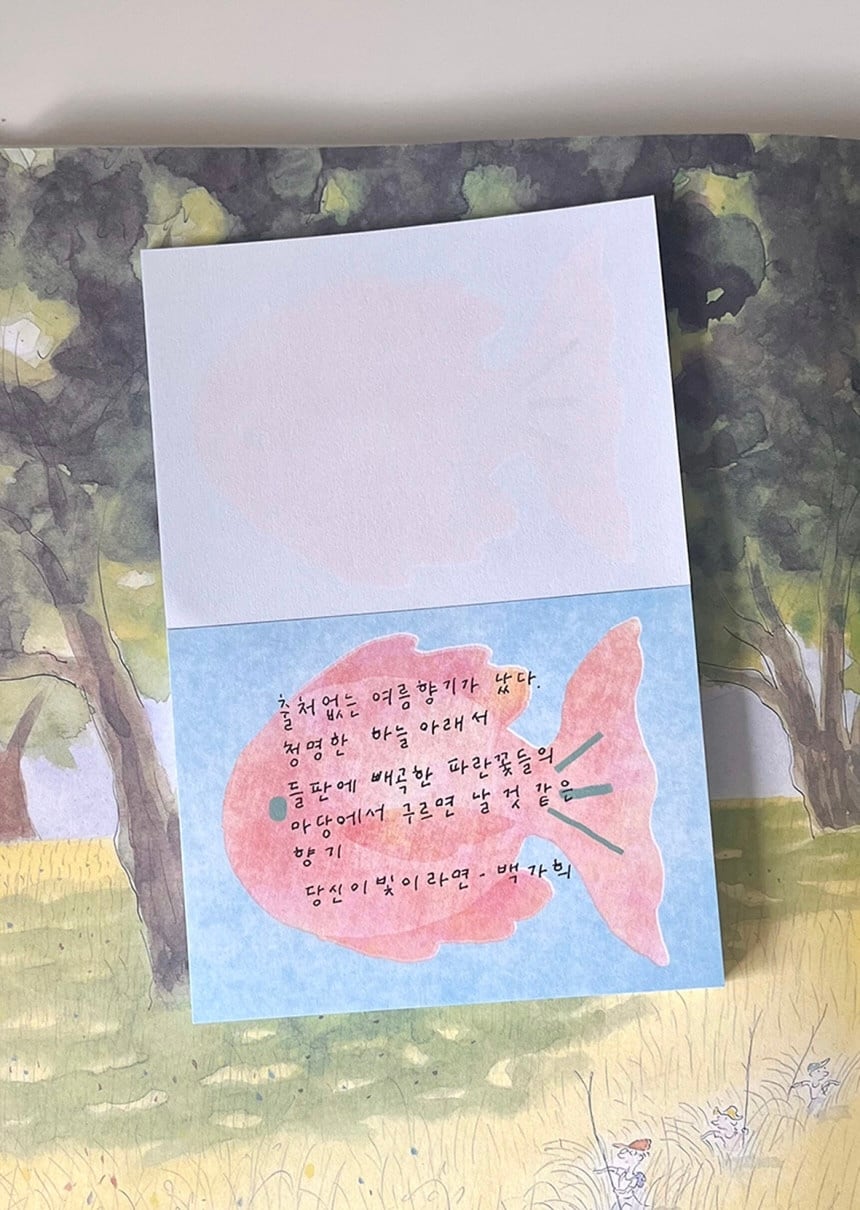 출처없는 여름향기가 났다.
청명한 하늘 아래서
들판에 빼곡한 파란꽃들의
마당에서 구르면 날 것 같은
향기
당신이빛이라면 - 백가희